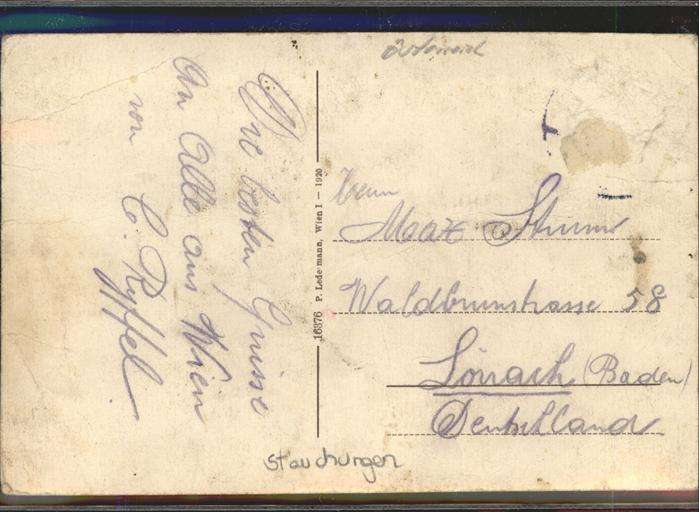 Österreich
Die besten Grüsse
An Alle aus Wien
von C. Ryffel.
16376 P. Ledermann, Wien I – 1920
Herrn
Max Sturm
Waldbrunnstrasse 58
Lörrach (Baden)
Deutschland
Stauchungen